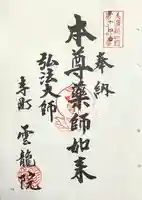 奉納
本尊薬師如来
弘法大師
寺町
雲龍院